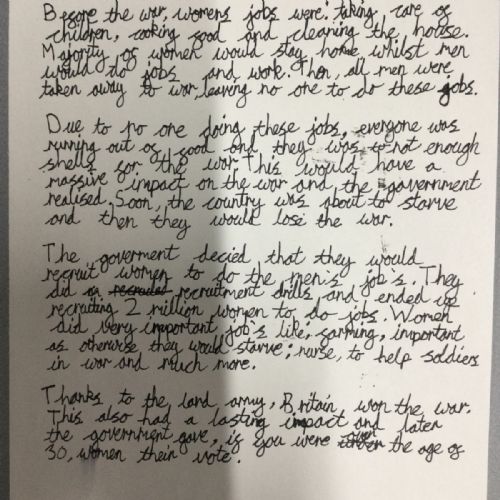 Before the war, womens jobs were: taking care of
children, cooking food and cleaning the house.
Majority of women would stay home whilst men
would do jobs and work. Then, all men were
taken away to war, leaving no one to do these jobs.
Due to no one doing these jobs, everyone was
running out of food and they was not enough
shells for the war. This would have a
massive impact on the war and the government
realised. Soon, the country was about to starve
and then they would lose the war.
The goverment decied that they would
recruit women to do the men's job's. They
did recruitment drills and ended up
recruiting 2 million women to do jobs. Women
did very important job's like, farming, important
as otherwise they would starve; nurse, to help soldiers
in war and much more.
Thanks to the land army, Britain won the war.
This also had a lasting impact and later
the government gave, if you were over the age of
30, women their vote.